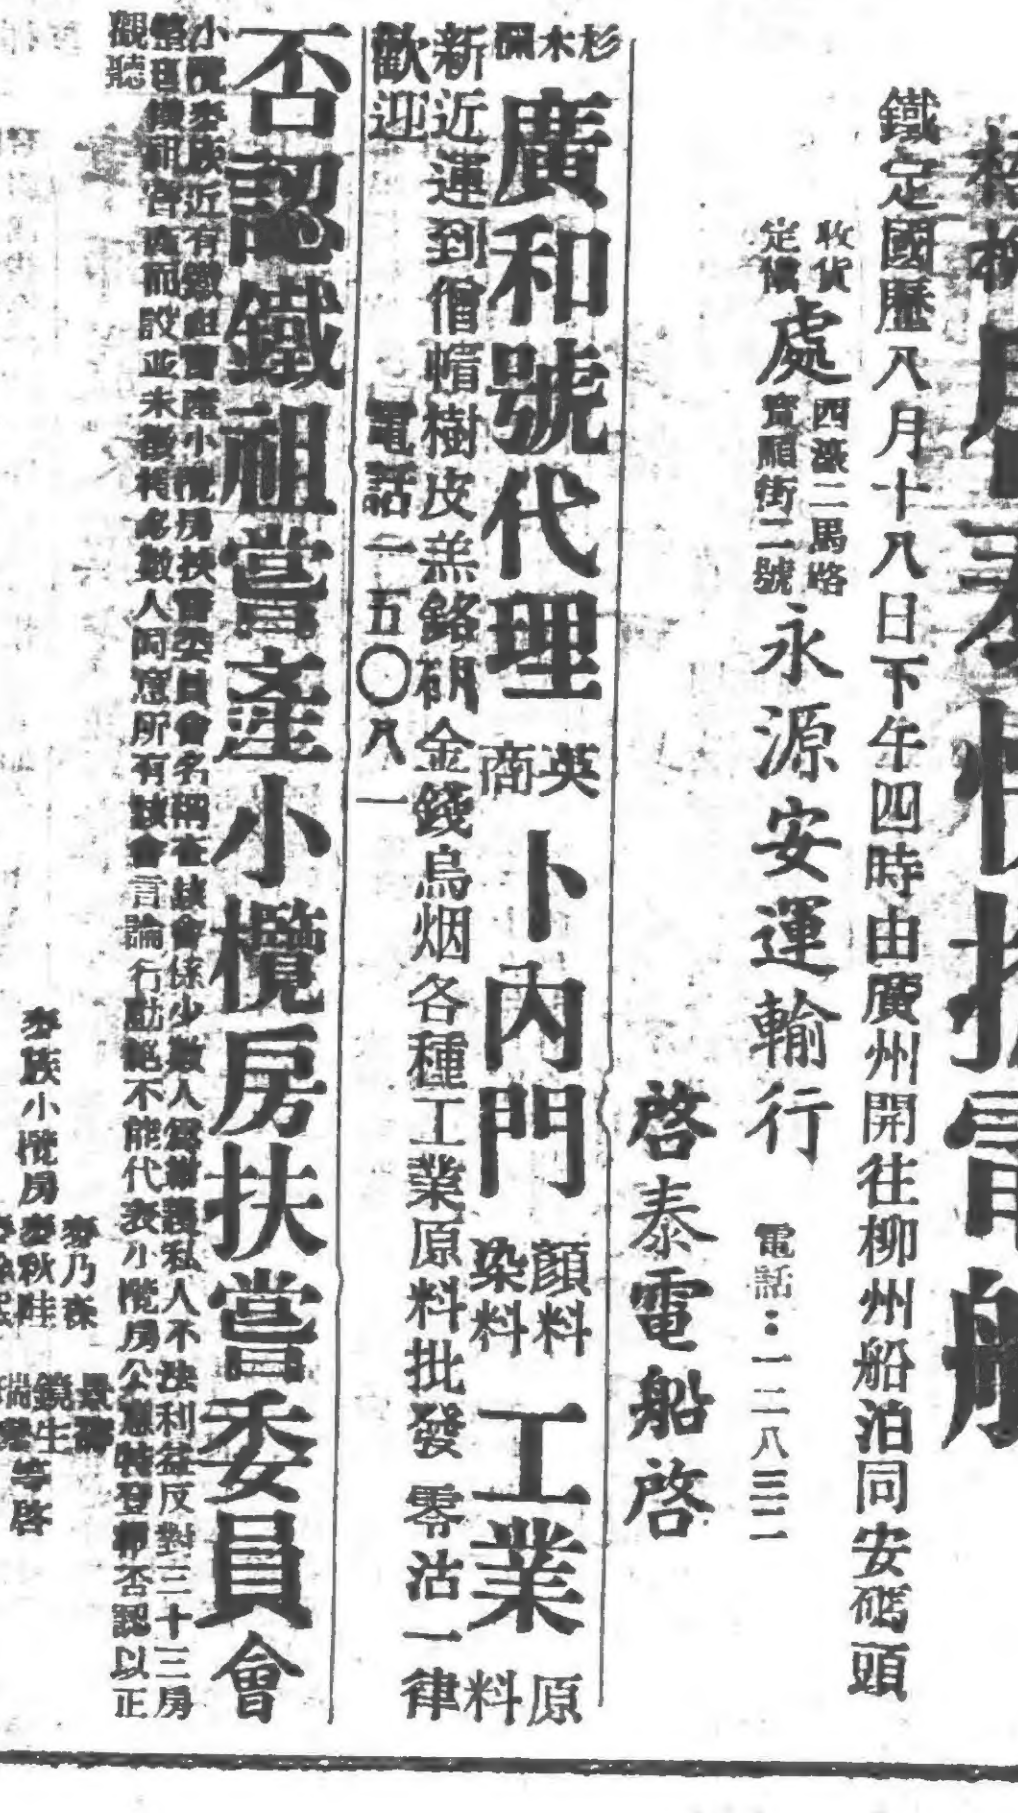 電船
鐵定國歷八月十八日下午四時由廣州開往柳州船泊同安碼頭
收貨
定儎
處
西濠二馬路
寶顯街二號
永源安運輸行
電話:一二八三二
啓泰電船啓
杉木欄
廣和號代理
英商
卜內門
顏料
染料
工業
原料
新近運到僧帽樹皮羔鉻礬金錢烏烟各種工業原料批發零沽一律
歡迎
電話一五〇八一
否認鐵祖嘗產小欖房扶嘗委員會
小欖麥族近有鐵祖嘗產小欖房扶嘗委員會名稱在該會係少數人為維護私人不法利益反對三十三房
而設並未徵得多數人同意所有該會言論行動絕不能代表小欖房公意特登報否認以正
觀聽
麥族小欖房
麥乃
麥秋畦
鏡生
等啓